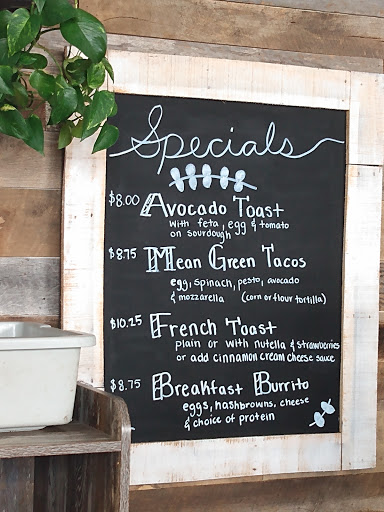 Specials
$8.00 Avocado Toast
with feta, egg & tomato
on sourdough
$8.75 Mean Green Tacos
egg, spinach, pesto, avocado
& mozzarella (corn or flour tortilla)
$10.25 French Toast
plain or with nutella & strawberries
or add cinnamon cream cheese sauce
$8.75 Breakfast Burrito
eggs, hashbrowns, cheese
& choice of protein